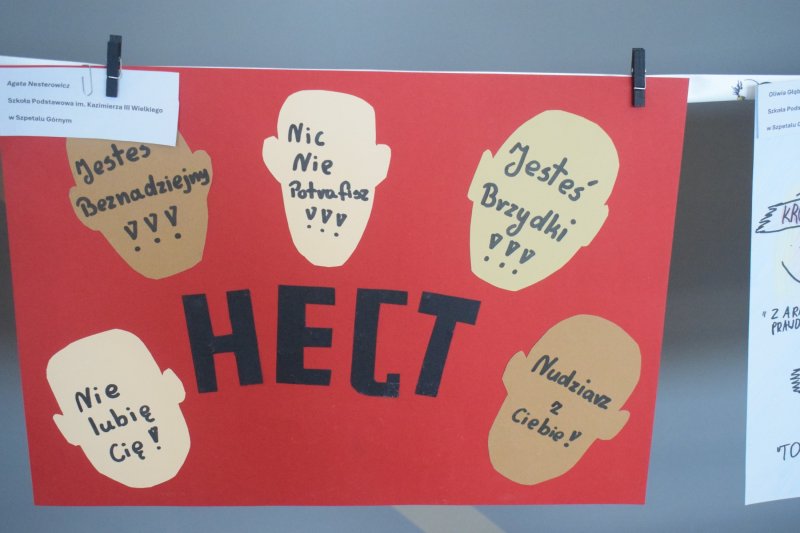 Agata Nesterowicz
Szkoła Podstawowa im. Kazimierza III Wielkiego
w Szpetalu Górnym
Jesteś
Beznadziejny
!!!
Nic
Nie
Potrafisz
!!!
Jesteś
Brzydki
!!!
HEGT
Nie
lubię
Cię!
Nudziarz
z
Ciebie!
Oliwia
Szkoła
w Szpetalu
"TO